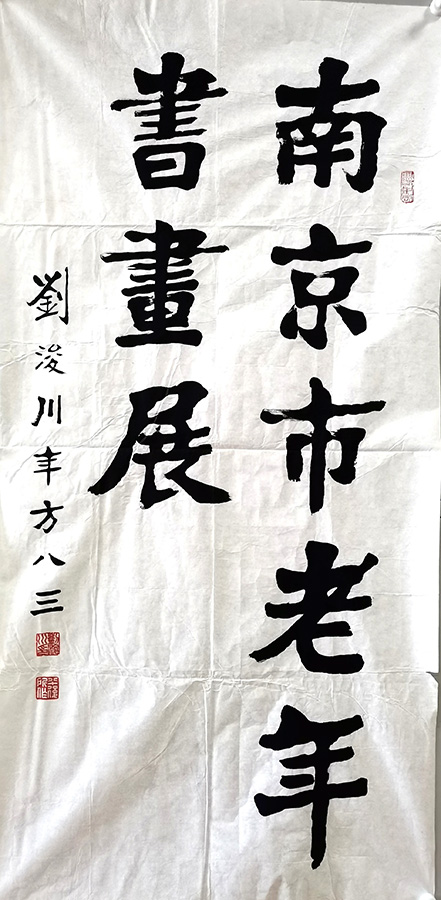 南京市老年
書畫展
劉浚川年方八三